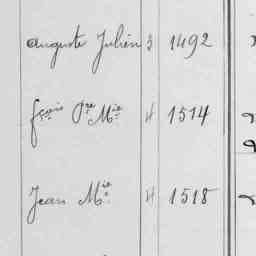 Auguste Julien 3 1492
fçois Pre Mie 4 1514
Jean Mie 4 1518